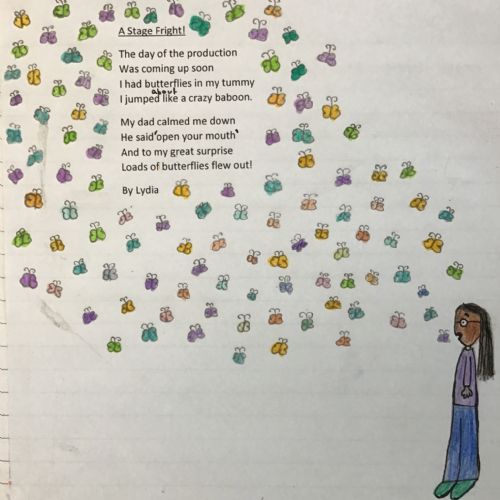 A Stage Fright!
The day of the production
Was coming up soon
I had butterflies in my tummy
I jumped about like a crazy baboon.
My dad calmed me down
He said 'open your mouth'
And to my great surprise
Loads of butterflies flew out!
By Lydia